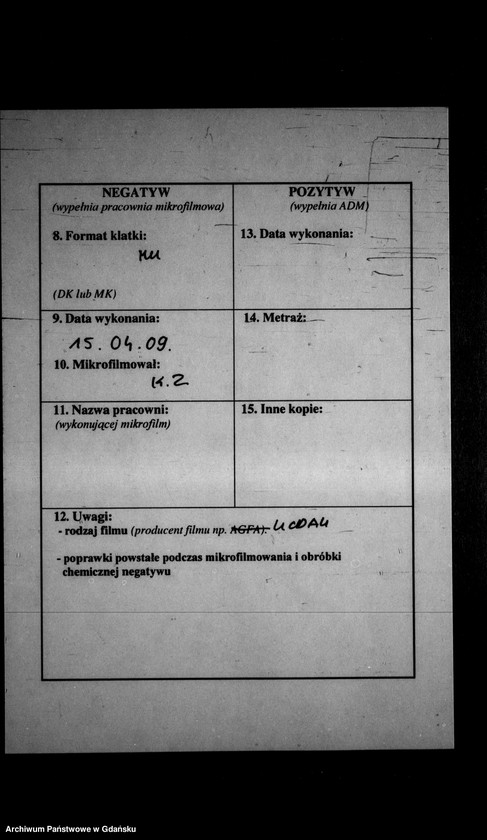 NEGATYW
(wypełnia pracownia mikrofilmowa)
8. Format klatki:
(DK lub MK)
9. Data wykonania:
15.04.09.
10. Mikrofilmował:
K.Z
11. Nazwa pracowni:
(wykonującej mikrofilm)
POZYTYW
(wypełnia ADM)
13. Data wykonania:
14. Metraż:
15. Inne kopie:
12. Uwagi:
- rodzaj filmu (producent filmu np. AGFA).
- poprawki powstałe podczas mikrofilmowania i obróbki
chemicznej negatywu
Archiwum Państwowe w Gdańsku